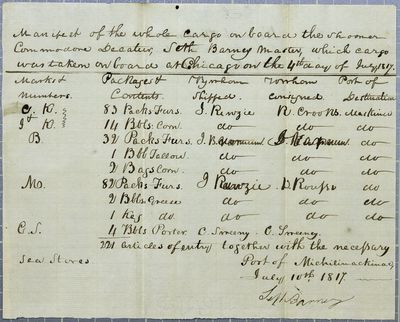 Manifest of the whole cargo on board the Skooner
Commodore Decater, Seth Barney Master, which cargo
was taken on board at Chicago on the 4th day of July 1817.
Marks & Packages & By whom To whom Port of
numbers. Contents. Shipped. consigned. Destination
J. K. 83 Packs Furs. J. Kinzie R. Crooks Mackinac
J. K. 14 Bbls Corn. do do do
B. 32 Packs Furs. J. do
1 Bbl Tallow. do do do
2 Bags Corn. do do do
Mo. 82 Packs Furs. J Kinzie D. Rouso do
2 Bbls Grease do do do
1 Keg do. do do do
C. S. 4 Bbls Porter C Sweeny. C. Sweeny.
221 articles of entry together with the necessary
Sea Stores Port of Michilimackinac
July 10th 1817
Seth Barney